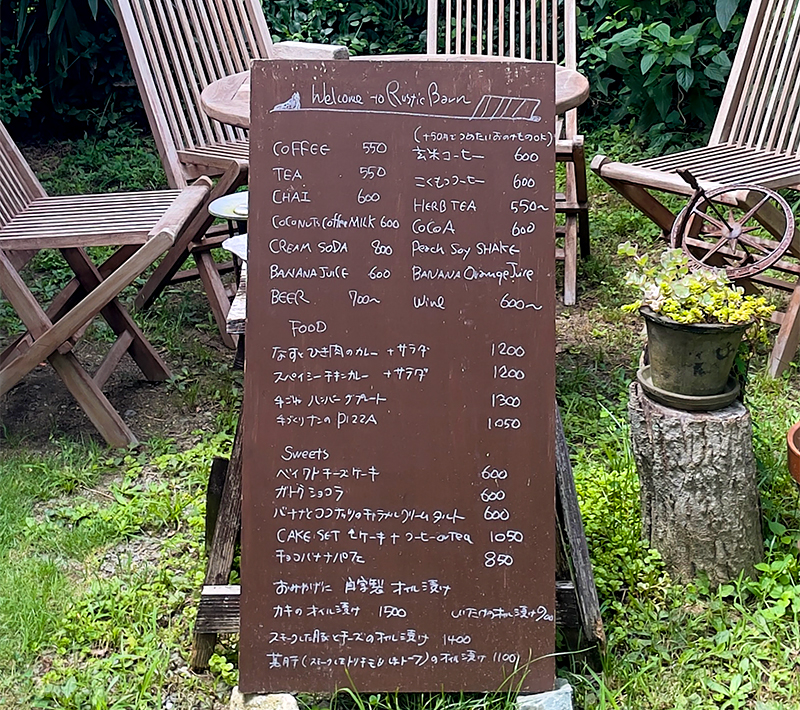 Welcome to Rustic Barn
(+50円でつめたいおのみものOK)
COFFEE 550 玄米コーヒー 600
TEA 550 こくもつコーヒー 600
CHAI 600 HERB TEA 550~
COCONUTS Coffee MILK 600 COCOA 600
CREAM SODA 800 Peach Soy SHAKE
BANANA JUICE 600 BANANA Orange Juice
BEER 700~ Wine 600~
FOOD
なすとひき肉のカレー +サラダ 1200
スペイシーチキンカレー +サラダ 1200
手ごね ハンバーグプレート 1300
手づくりナンの PIZZA 1050
Sweets
ベイクドチーズケーキ 600
ガトウショコラ 600
バナナとココナッツのキャラメルクリームタルト 600
CAKE SET ケーキ + コーヒー or TEA 1050
チョコバナナパフェ 850
おみやげに 自家製 オイル漬け
カキのオイル漬け 1500 しいたけのオイル漬け 900
スモークした豚とチーズのオイル漬け 1400
(スモークしたトリ) のオイル漬け 1100